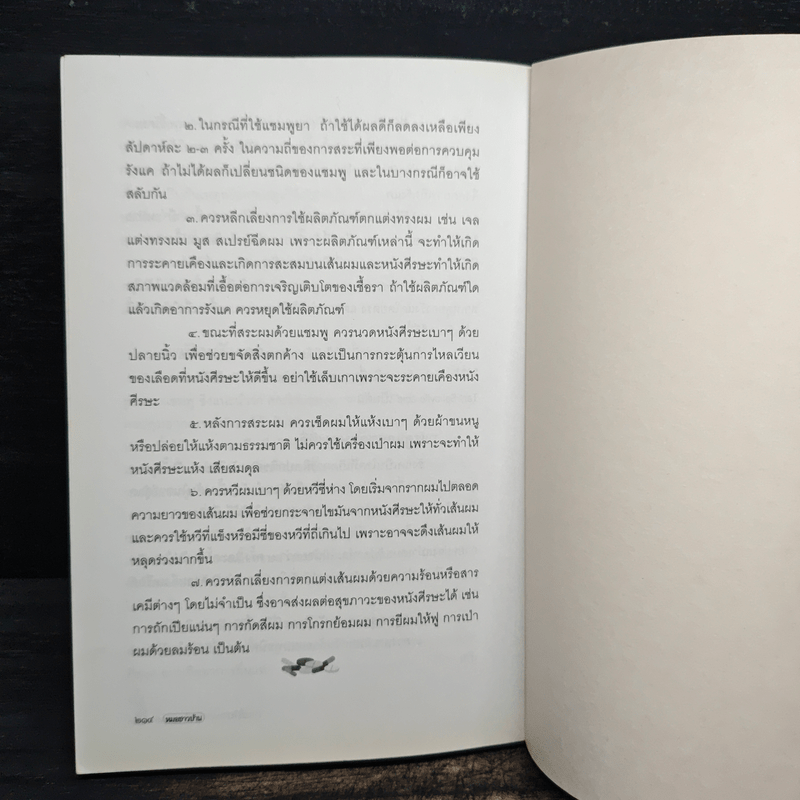 ๒. ในกรณีที่ใช้แชมพูยา ถ้าใช้ได้ผลดีก็ลดลงเหลือเพียง
สัปดาห์ละ ๒-๓ ครั้ง ในความถี่ของการสระที่เพียงพอต่อการควบคุม
รังแค ถ้าไม่ได้ผลก็เปลี่ยนชนิดของแชมพู และในบางกรณีก็อาจใช้
สลับกัน
๓. ควรหลีกเลี่ยงการใช้ผลิตภัณฑ์ตกแต่งทรงผม เช่น เจล
แต่งทรงผม มูส สเปรย์ฉีดผม เพราะผลิตภัณฑ์เหล่านี้ จะทำให้เกิด
การระคายเคืองและเกิดการสะสมบนเส้นผมและหนังศีรษะทำให้เกิด
สภาพแวดล้อมที่เอื้อต่อการเจริญเติบโตของเชื้อรา ถ้าใช้ผลิตภัณฑ์ใด
แล้วเกิดอาการรังแค ควรหยุดใช้ผลิตภัณฑ์
๔. ขณะที่สระผมด้วยแชมพู ควรนวดหนังศีรษะเบาๆ ด้วย
ปลายนิ้ว เพื่อช่วยขจัดสิ่งตกค้าง และเป็นการกระตุ้นการไหลเวียน
ของเลือดที่หนังศีรษะให้ดีขึ้น อย่าใช้เล็บเกาเพราะจะระคายเคืองหนัง
ศีรษะ
๕. หลังการสระผม ควรเช็ดผมให้แห้งเบาๆ ด้วยผ้าขนหนู
หรือปล่อยให้แห้งตามธรรมชาติ ไม่ควรใช้เครื่องเป่าผม เพราะจะทำให้
หนังศีรษะแห้ง เสียสมดุล
๖. ควรหวีผมเบาๆ ด้วยหวีซี่ห่าง โดยเริ่มจากรากผมไปตลอด
ความยาวของเส้นผม เพื่อช่วยกระจายไขมันจากหนังศีรษะให้ทั่วเส้นผม
และควรใช้หวีที่แข็งหรือมีซี่ของหวีที่ถี่เกินไป เพราะอาจจะดึงเส้นผมให้
หลุดร่วงมากขึ้น
๗. ควรหลีกเลี่ยงการตกแต่งเส้นผมด้วยความร้อนหรือสาร
เคมีต่างๆ โดยไม่จำเป็น ซึ่งอาจส่งผลต่อสุขภาวะของหนังศีรษะได้ เช่น
การถักเปียแน่นๆ การกัดสีผม การโกรกย้อมผม การยีผมให้ฟู การเป่า
ผมด้วยลมร้อน เป็นต้น
๒๑๔ หมอชาวบ้าน